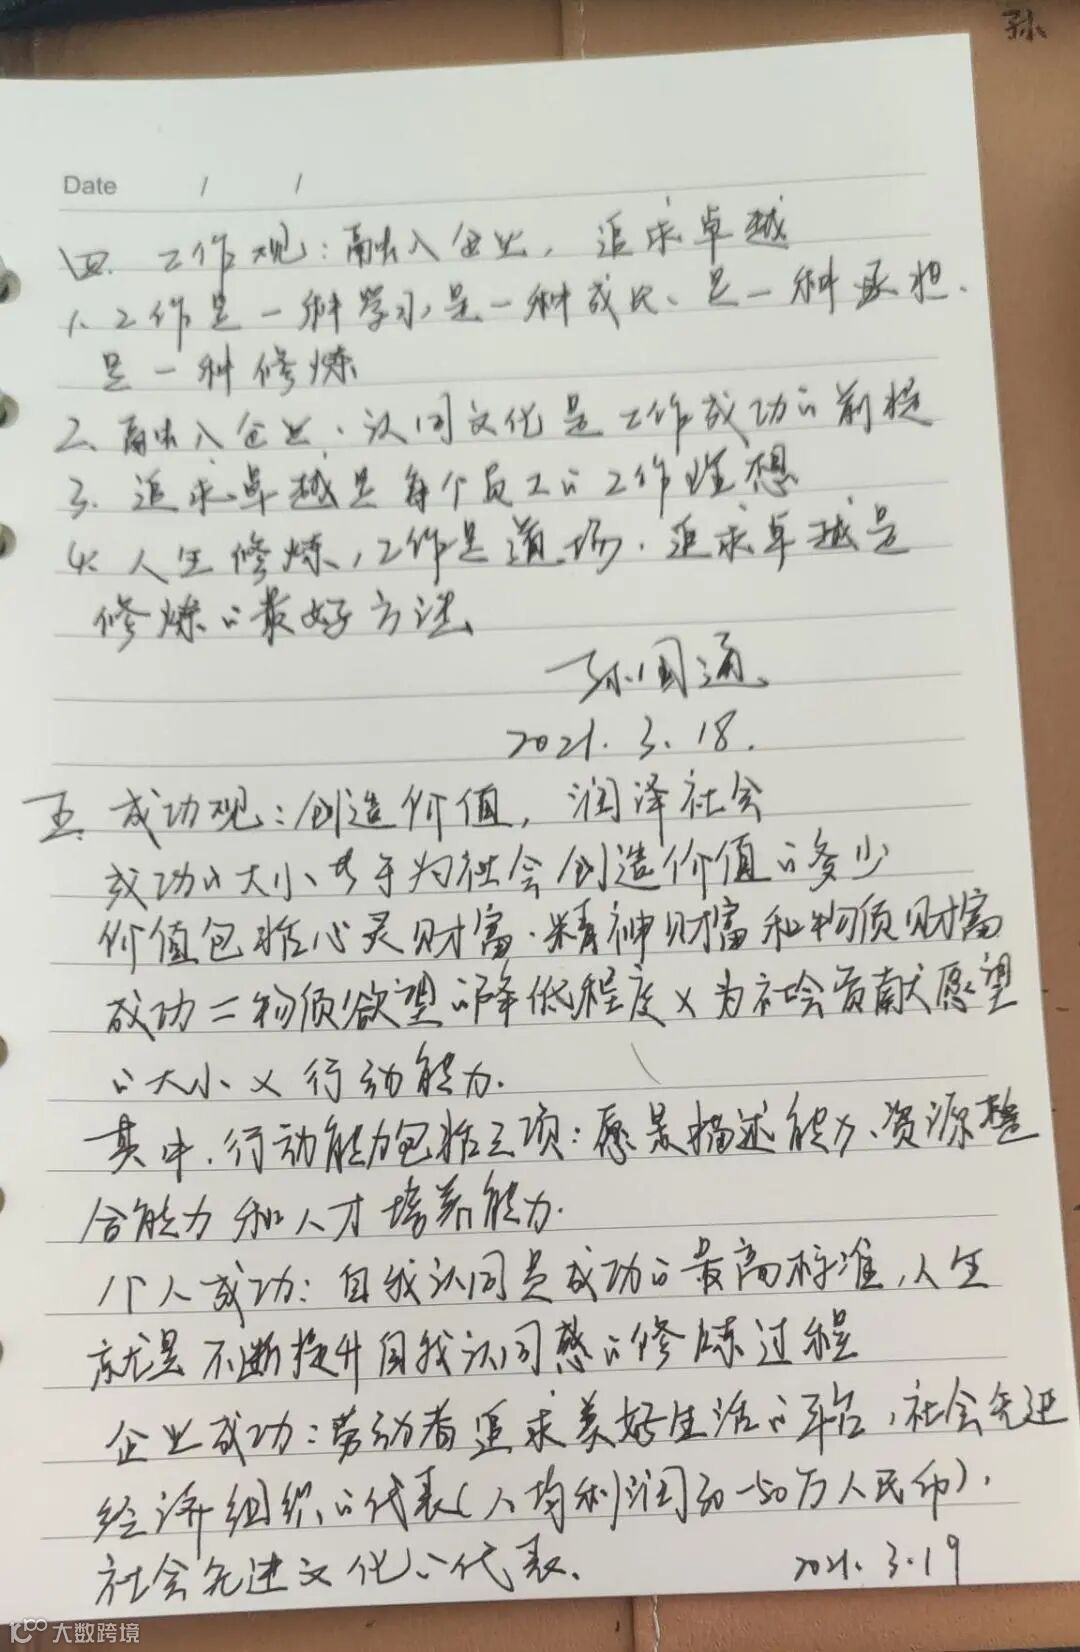 孙
Date / /
四、工作观：融入企业，追求卓越
1、工作是一种学习，是一种成长、是一种承担、
是一种修炼
2、融入企业、认同文化是工作成功的前提
3、追求卓越是每个员工的工作理想
4、人生修炼，工作是道场，追求卓越是
修炼的最好方法
孙国通
2021.3.18.
五、成功观：创造价值，润泽社会
成功的大小、等于为社会创造价值的多少
价值包括心灵财富、精神财富和物质财富
成功=物质欲望的降低程度×为社会贡献愿望
的大小×行动能力.
其中，行动能力包括三项：愿景描述能力、资源整
合能力和人才培养能力.
个人成功：自我认同是成功的最高标准，人生
就是不断提升自我认同感的修炼过程
企业成功：劳动者追求美好生活的平台，社会先进
经济组织的代表(人均利润30-50万人民币)，
社会先进文化的代表.
2021.3.19
大数跨境